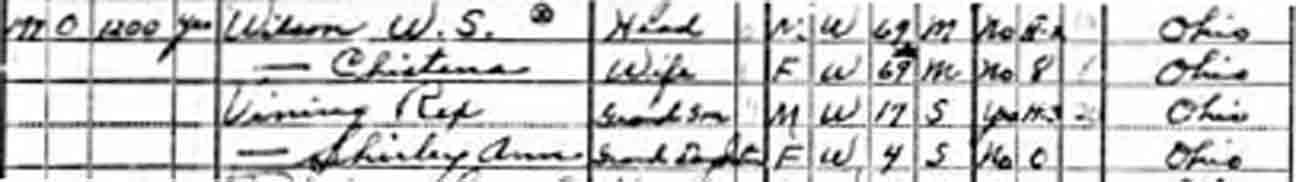 197 O 1200 yes Wilson W. S. Head M W 69 M No H-2 Ohio
— Chistena Wife F W 69 M No 8 Ohio
Vining Rex Grand Son M W 17 S yes H-3 Ohio
— Shirley Ann Grand Daughter F W 4 S No 0 Ohio